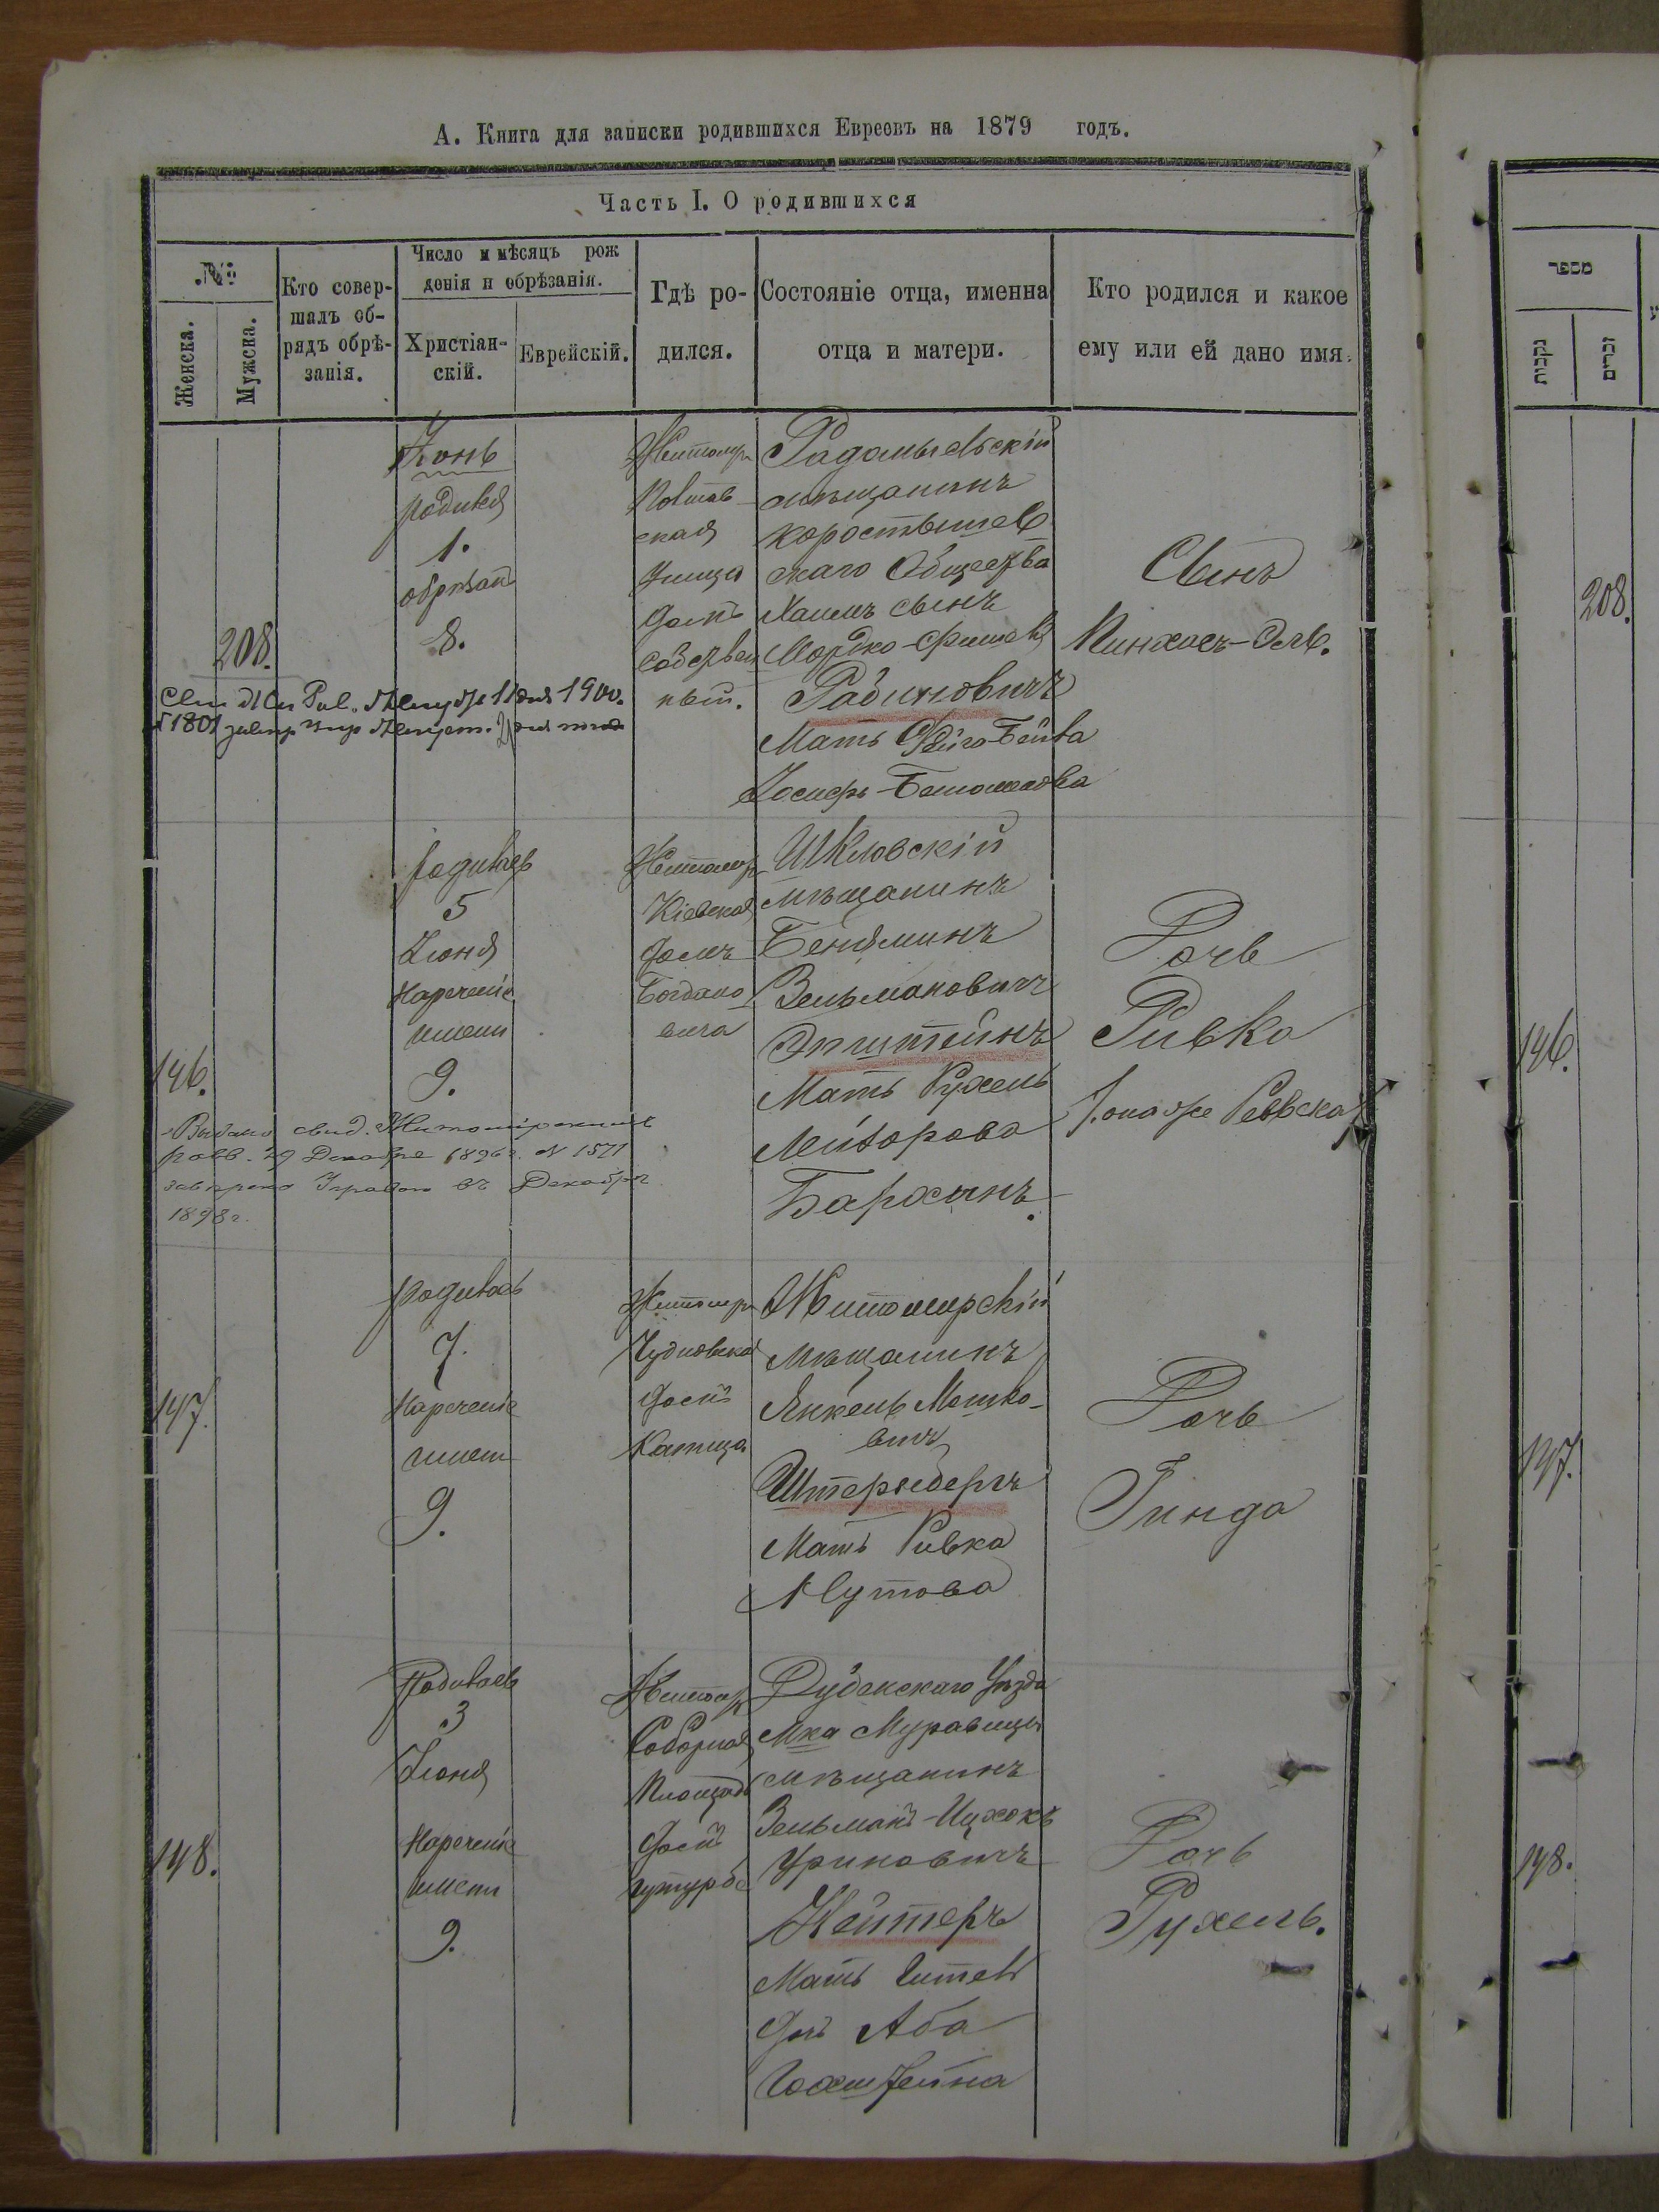 А. Книга для записки родившихся Евреевъ на 1879 годъ.
Часть I. О родившихся
№
Женска.
Мужска.
Кто совер-
шалъ об-
рядъ обрѣ-
занія.
Число и мѣсяцъ рож
денія и обрѣзанія.
Христіан-
скій.
Еврейскій.
Гдѣ ро-
дился.
Состояніе отца, именна
отца и матери.
Кто родился и какое
ему или ей дано имя.
208.
Іюнь
родился
1.
обрѣзанъ
8.
Житомир
ская
улица
домъ
собствен
ный.
Радомысльскій
мѣщанинъ
Коростышев
скаго Общества
Хаимъ сынъ
Мордко-Фишель
Рабиновичъ
Мать
Сынъ
Пинхасъ-Эль.
146.
родилась
5
Іюня
Нареченіе
имени
9.
Житомир
Кіевская
домъ
Богдано
вича
Шкловскій
мѣщанинъ
Беняминъ
Зельмановичъ
Эпштейнъ
Мать Рухель
Лейзорова
Бархынъ.
Дочь
Ривка
Выдано свид. Житомирскимъ
равв. 29 Декабря 1896 г. N 1571
Декабрѣ
1898 г.
147.
родилась
7.
Нареченіе
имени
9.
Житомир
Чудновская
домъ
Катца
Житомирскій
мѣщанинъ
Янкель Мошко-
вичъ
Штернбергъ
Мать Ривка
Мутова
Дочь
Гинда
148.
Родилась
3
Іюня
Нареченіе
имени
9.
Житомир
Соборная
Площадь
домъ
Дубенскаго Уѣзда
Мка Муравицы
мѣщанинъ
Зельманъ-Ицхокъ
Уриновичъ
Нейтеръ
Мать Гитель
дчь Аба
Гохштейна
Дочь
Рухель.
מספר
נקבות
זכרים
208.
146.
147.
148.